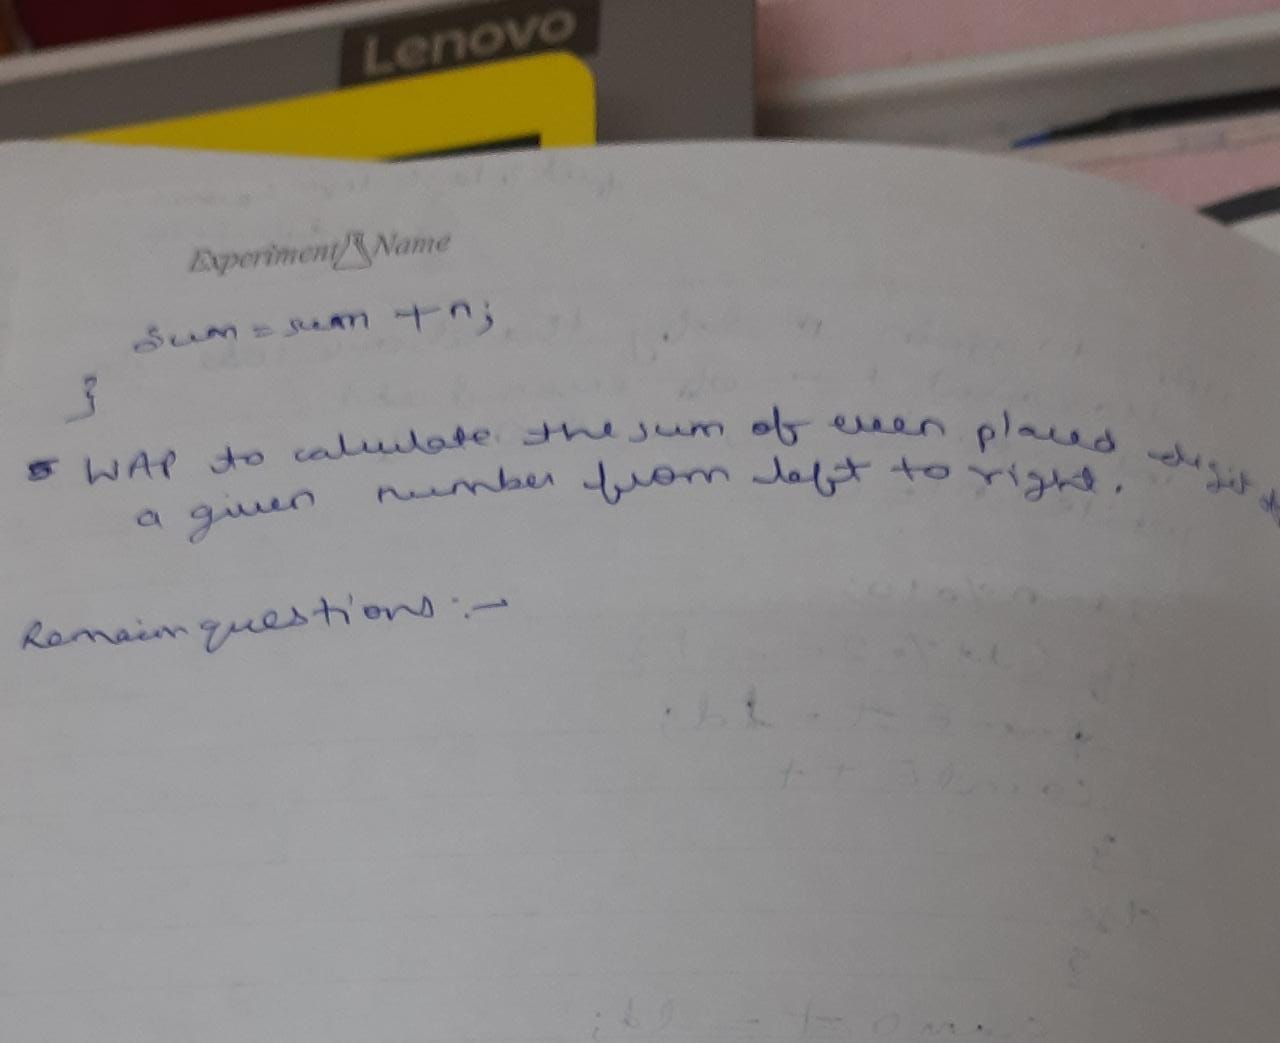 Lenovo
Experiment Name
sum = sum + n;
}
5 WAP to calculate the sum of even placed digit of
a given number from left to right.
Remain questions :-